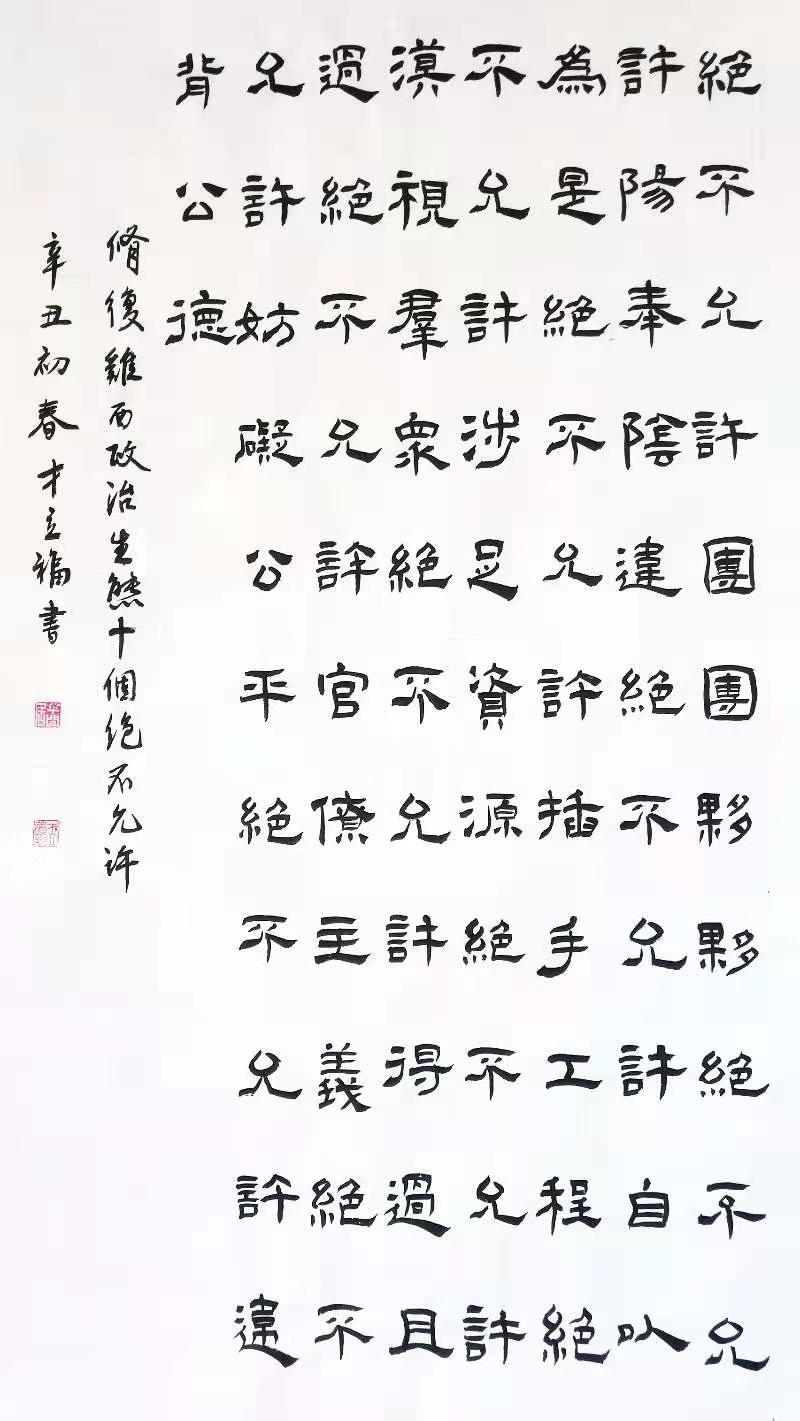 絕不允許團團夥夥絕不允
許陽奉陰違絕不允許自以
為是絕不允許插手工程絕
不允許涉足資源絕不允許
漠視羣衆絕不允許得過且
過絕不允許官僚主義絕不
允許妨礙公平絕不允許違
背公德
脩復雞西政治生態十個绝不允许
辛丑初春才立福書